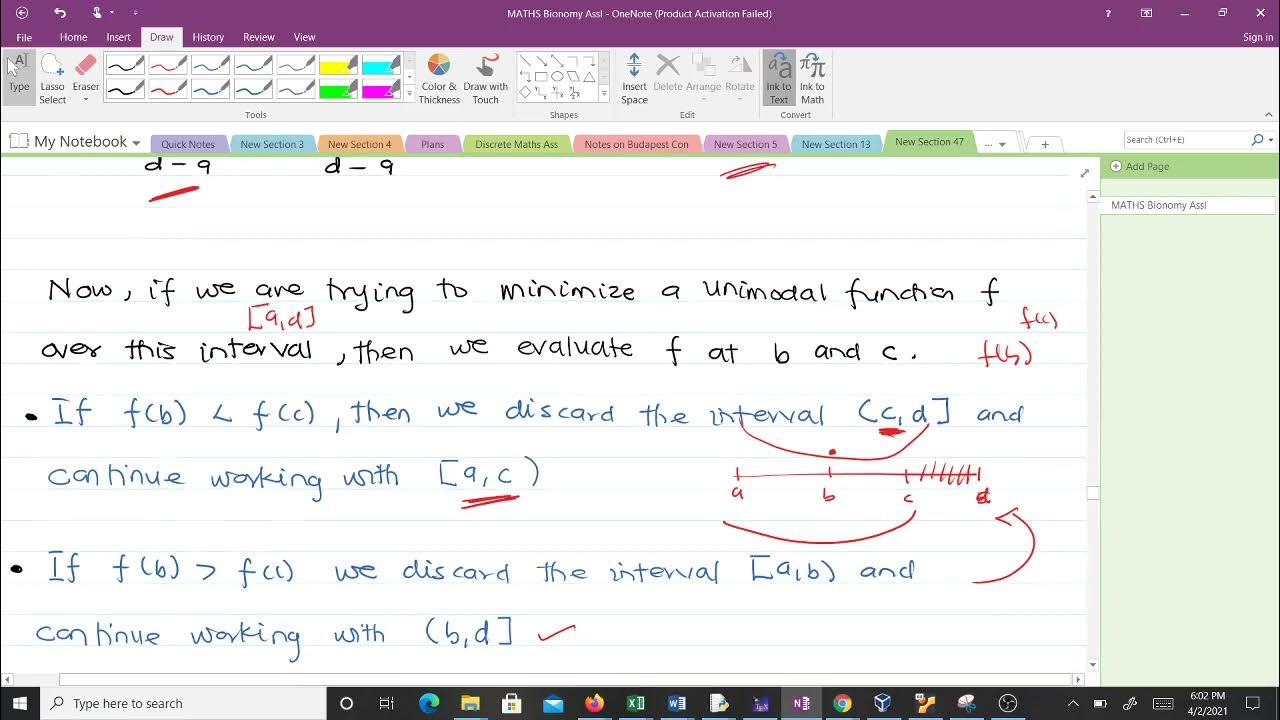 MATHS Bionomy Assl - OneNote (Product Activation Failed)
File Home Insert Draw History Review View Sign in
Type Lasso Select Eraser Color & Thickness Draw with Touch Insert Space Delete Arrange Rotate Ink to Text Ink to Math
Tools Shapes Edit Convert
My Notebook Quick Notes New Section 3 New Section 4 Plans Discrete Maths Ass Notes on Budapest Con New Section 5 New Section 13 New Section 47 ... Search (Ctrl+E)
Add Page
MATHS Bionomy Assl
d - a d - a
Now, if we are trying to minimize a unimodal function f
[a,d] f(c)
over this interval, then we evaluate f at b and c. f(b)
• If f(b) < f(c), then we discard the interval (c,d] and
continue working with [a,c)
a b c d
• If f(b) > f(c) we discard the interval [a,b) and
continue working with (b,d]
Type here to search
6:02 PM
4/2/2021